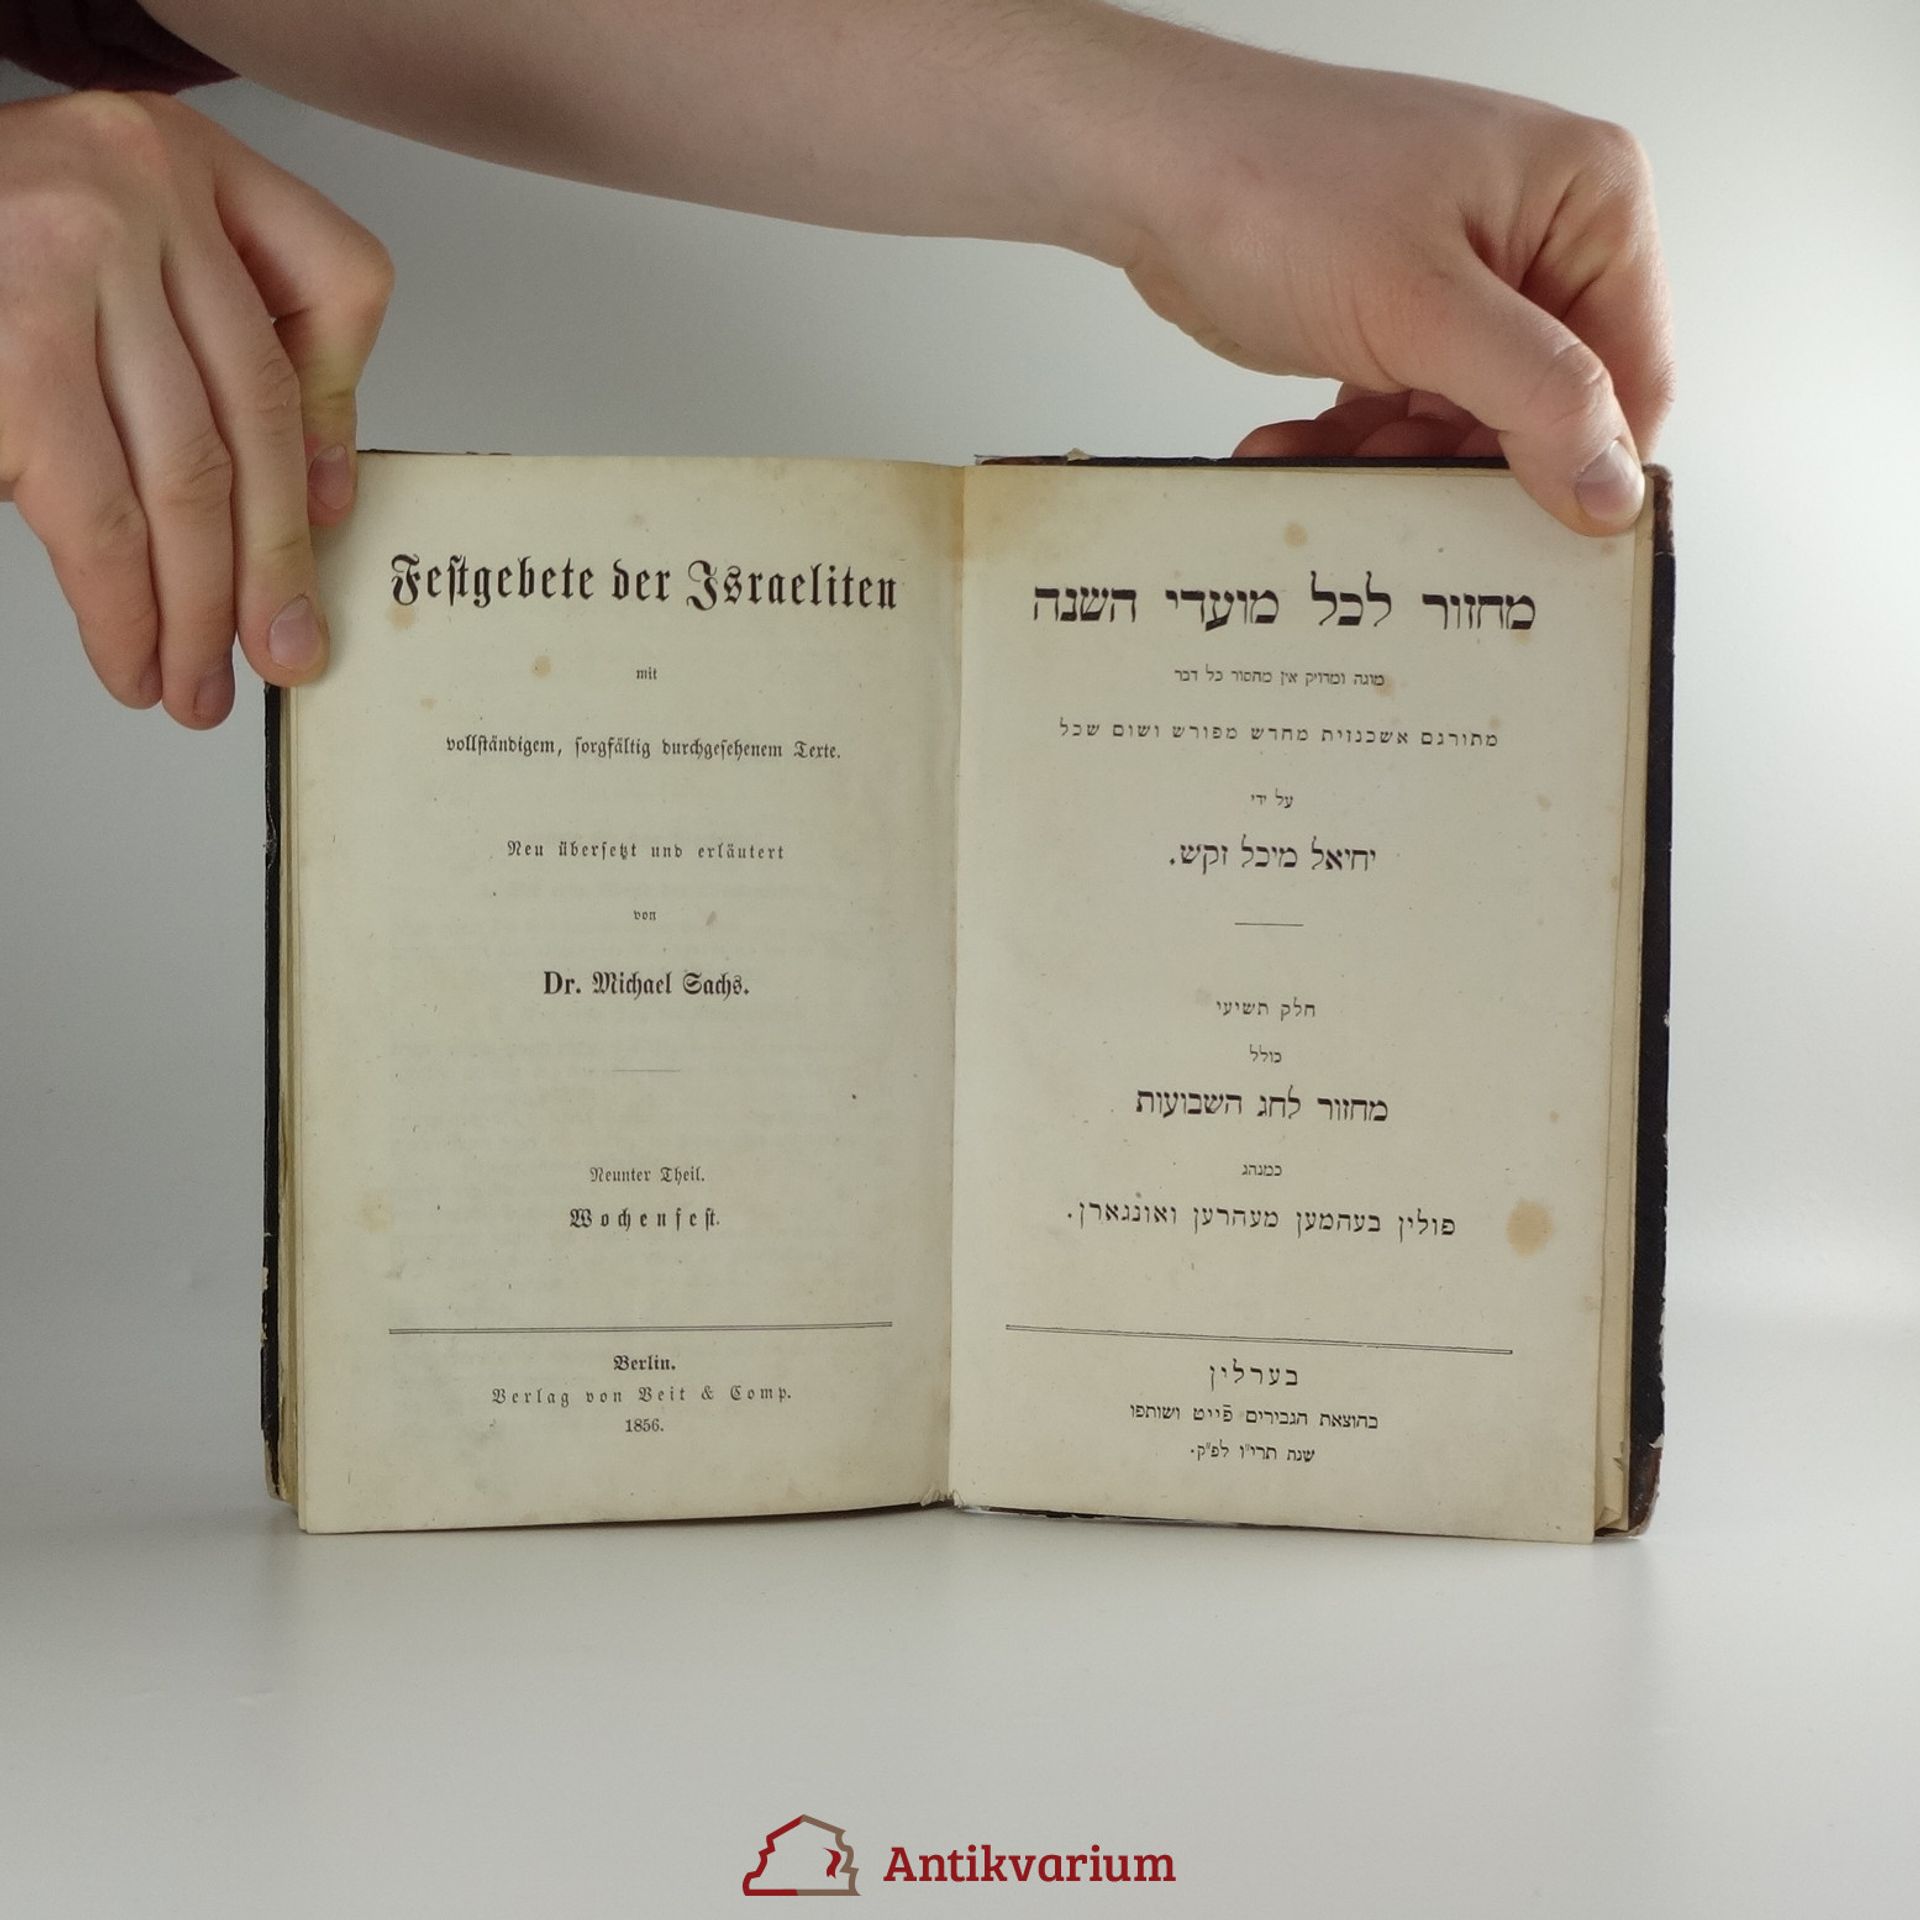 Festgebete der Israeliten
mit
vollständigem, sorgfältig durchgesehenem Texte.
Neu übersetzt und erläutert
von
Dr. Michael Sachs.
Neunter Theil.
Wochenfest.
Berlin.
Verlag von Veit & Comp.
1856.
מחזור לכל מועדי השנה
מוגה ומדויק אין מחסור כל דבר
מתורגם אשכנזית מחדש מפורש ושום שכל
על ידי
יחיאל מיכל זקש.
חלק תשיעי
כולל
מחזור לחג השבועות
כמנהג
פולין בעהמען מעהרען ואונגארן.
בערלין
בהוצאת הגבירים פֿייט ושותפו
שנת תרי״ו לפ״ק.
Antikvarium